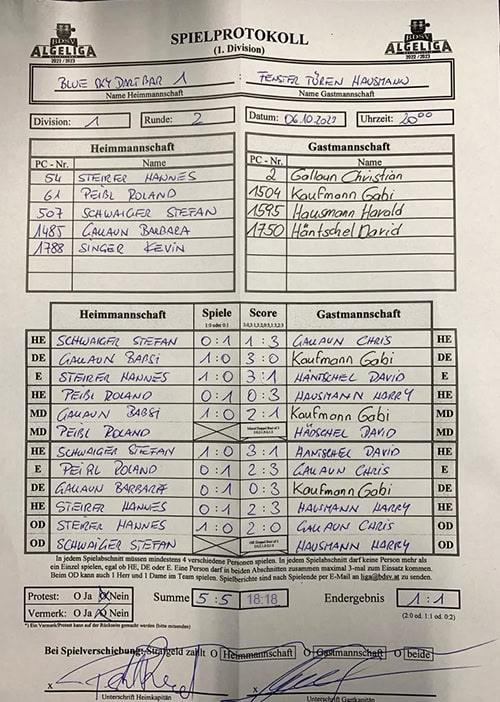 BDSV
ALGELIGA
2022/2023
SPIELPROTOKOLL
(1. Division)
BDSV
ALGELIGA
2022/2023
BLUE SKY DARTBAR 1 : FENSTER TÜREN HAUSMANN
Name Heimmannschaft Name Gastmannschaft
Division: 1 Runde: 2 Datum: 06.10.2022 Uhrzeit: 20⁰⁰
Heimmannschaft Gastmannschaft
PC - Nr. Name PC - Nr. Name
54 STEIRER HANNES 2 Gallaun Christian
61 PEIBL ROLAND 1504 Kaufmann Gabi
507 SCHWAIGER STEFAN 1595 Hausmann Harald
1485 GALLAUN BARBARA 1750 Häntschel David
1788 SINGER KEVIN
Heimmannschaft Spiele Score Gastmannschaft
1:0 oder 0:1
HE SCHWAIGER STEFAN 0:1 1:3 GALLAUN CHRIS HE
DE GALLAUN BABSI 1:0 3:0 Kaufmann Gabi DE
E STEIRER HANNES 1:0 3:1 HÄNTSCHEL DAVID E
HE PEIBL ROLAND 0:1 0:3 HAUSMANN HARRY HE
MD GALLAUN BABSI 1:0 2:1 Kaufmann Gabi MD
MD PEIBL ROLAND HÄDSCHEL DAVID MD
HE SCHWAIGER STEFAN 1:0 3:1 HÄNTSCHEL DAVID HE
E PEIBL ROLAND 0:1 2:3 GALLAUN CHRIS E
DE GALLAUN BARBARA 0:1 0:3 Kaufmann Gabi DE
HE STEIRER HANNES 0:1 2:3 HAUSMANN HARRY HE
OD STEIRER HANNES 1:0 2:0 GALLAUN CHRIS OD
OD SCHWAIGER STEFAN HAUSMANN HARRY OD
In jedem Spielabschnitt müssen mindestens 4 verschiedene Personen spielen. In jedem Spielabschnitt darf keine Person mehr als
ein Einzel spielen, egal ob HE, DE oder E. Eine Person darf in beiden Abschnitten zusammen maximal 3-mal zum Einsatz kommen.
Beim OD kann auch 1 Herr und 1 Dame im Team spielen. Spielberichte sind nach Spielende per E-Mail an liga@bdsv.at zu senden.
Protest: O Ja O Nein Summe 5:5 18:18 Endergebnis 1:1
Vermerk: O Ja O Nein (2:0 od. 1:1 od. 0:2)
*) Ein Vermerk/Protest kann auf der Rückseite gemacht werden (bitte mitsenden)
Bei Spielverschiebung: Strafgeld zahlt O Heimmannschaft O Gastmannschaft O beide
x x
Unterschrift Heimkapitän Unterschrift Gastkapitän